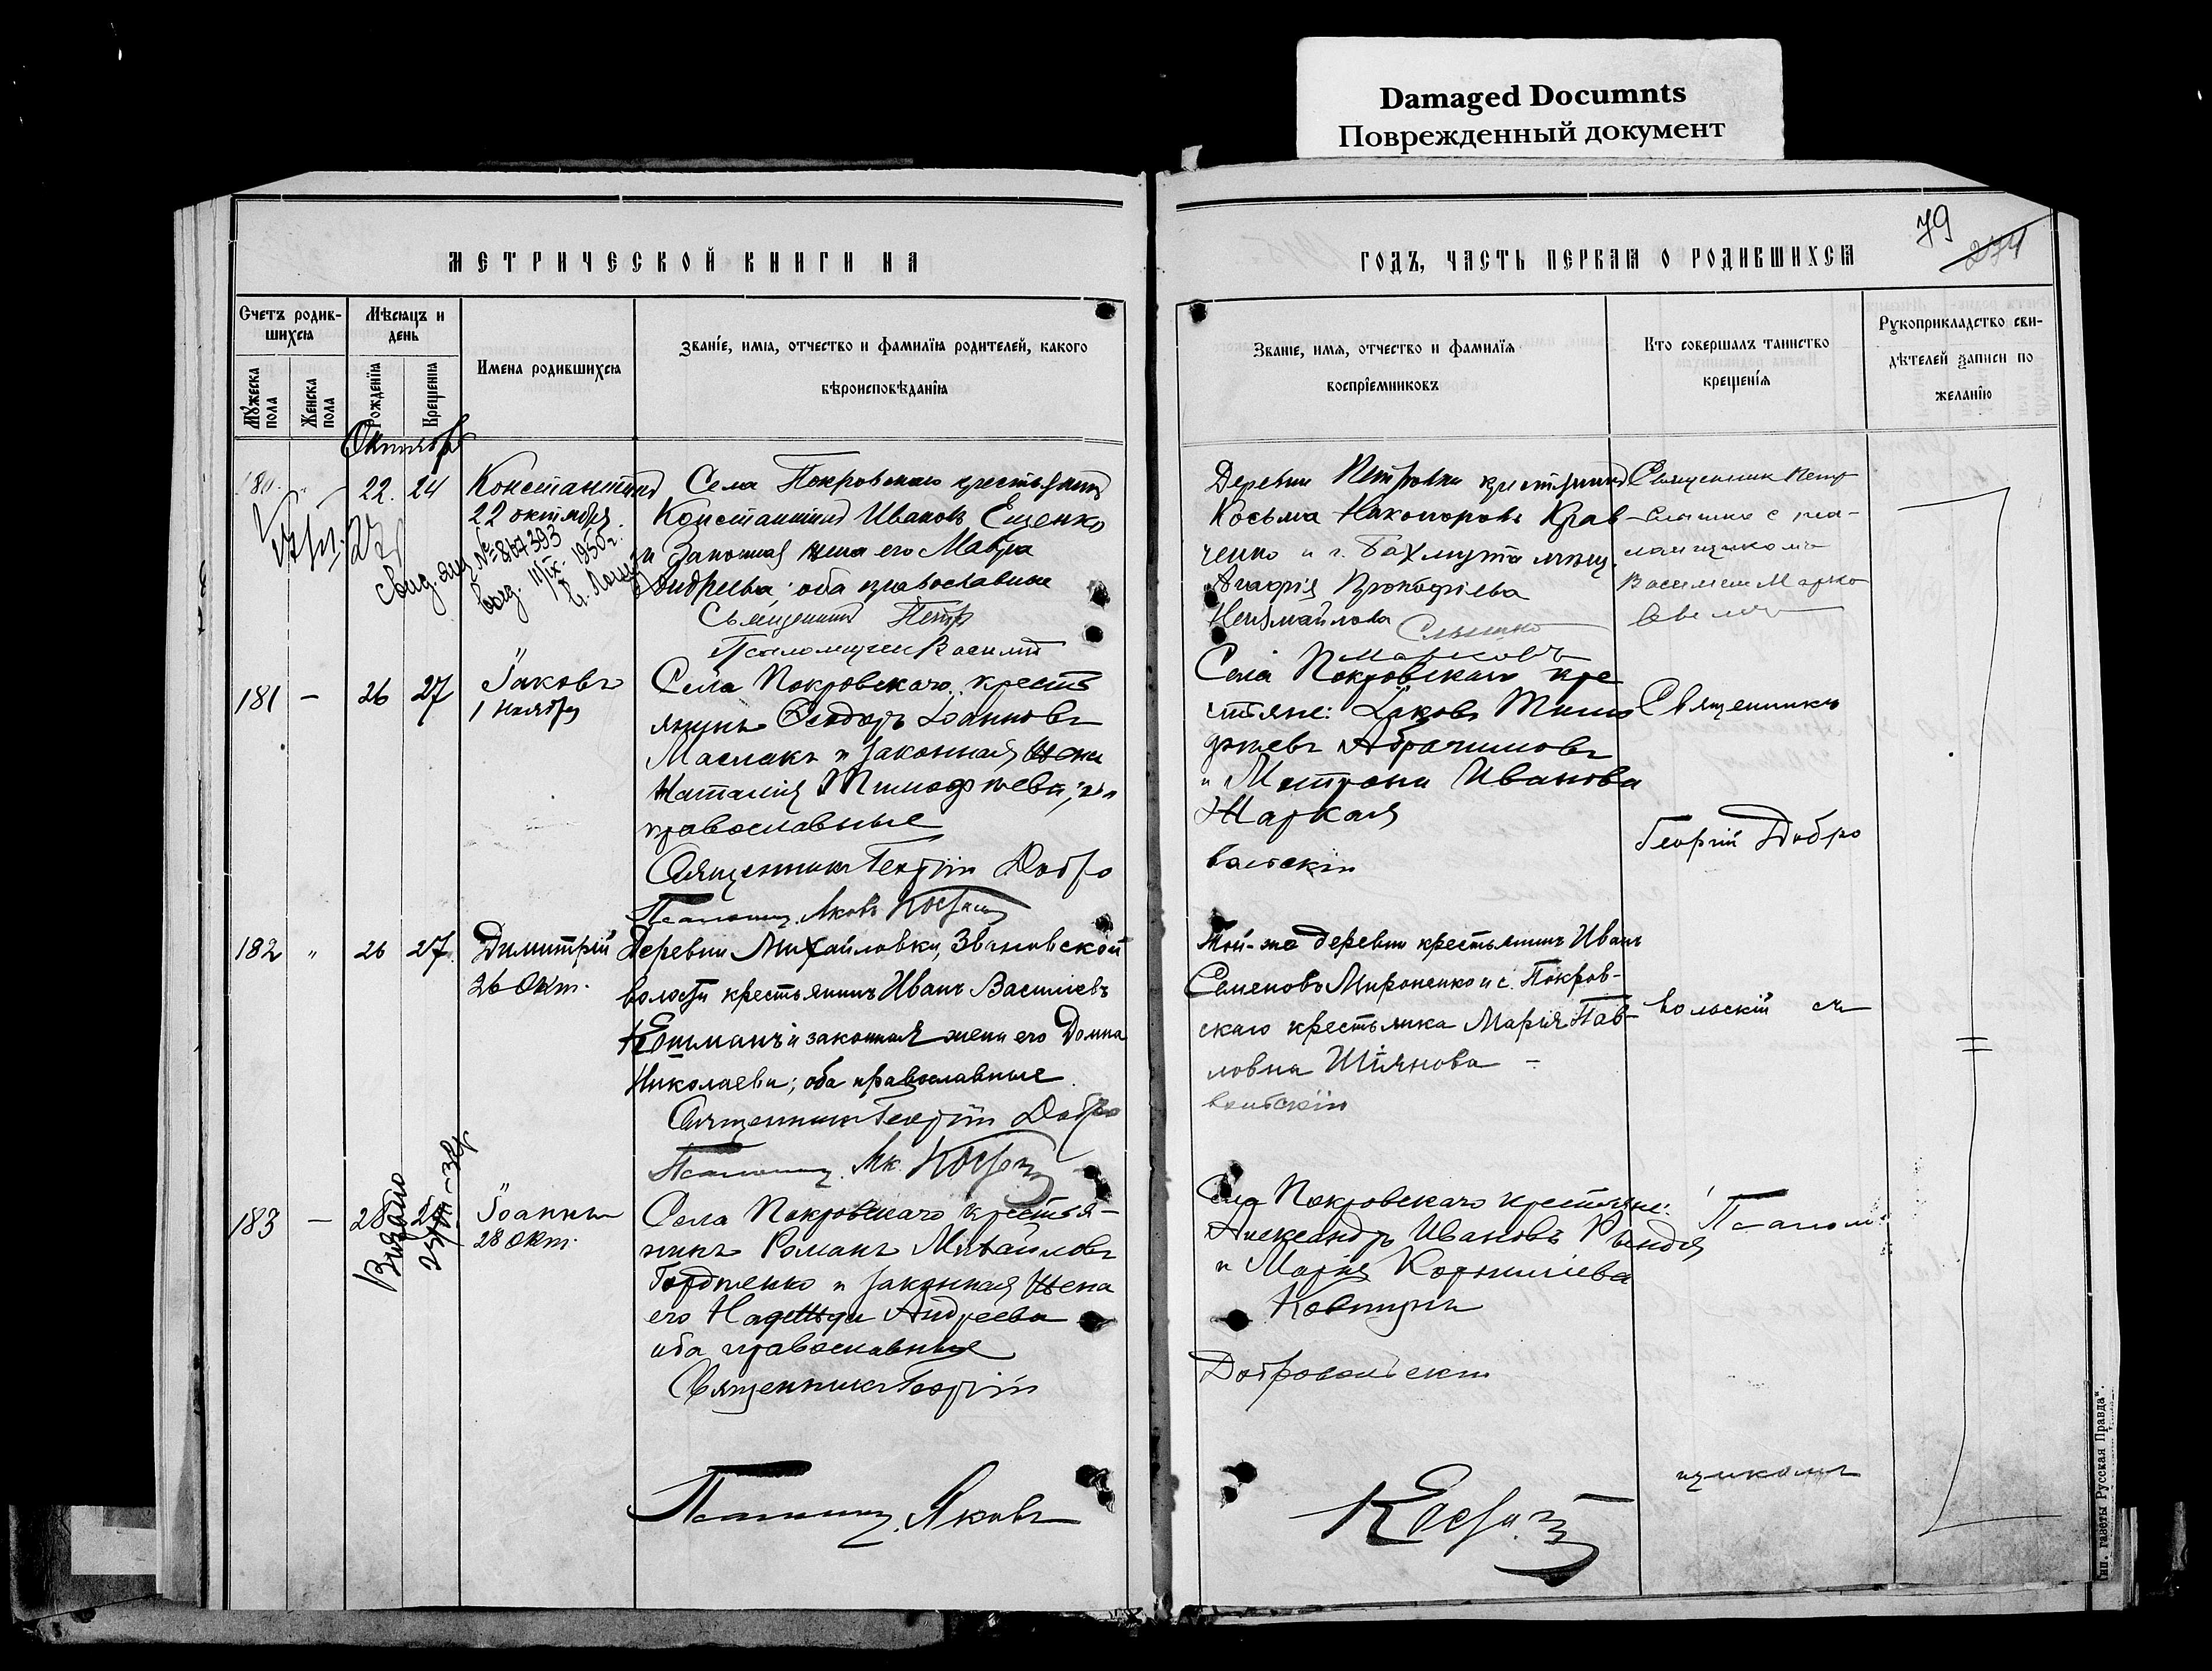 Damaged Documnts
Поврежденный документ
79
274
МЕТРИЧЕСКОЙ КНИГИ НА
ГОДЪ, ЧАСТЬ ПЕРВАЯ О РОДИВШИХСЯ
Счетъ родив-
шихся
Мѣсяцъ и
день
Мужеска
пола
Женска
пола
Рожденія
Крещенія
Имена родившихся
Званіе, имя, отчество и фамилія родителей, какого
вѣроисповѣданія
Званіе, имя, отчество и фамилія
воспріемниковъ
Кто совершалъ таинство
крещенія
Рукоприкладство сви-
дѣтелей записи по
желанію
Октября
180 " 22. 24
Константинъ
22 октября.
№ 867393
выд. 11/IX-1950г.
Села Покровскаго крестьянинъ
Константинъ Ивановъ Ещенко
и Законная жена его Мавра
Андреева; оба православные
Священникъ Петръ
Псаломщикъ Василій
Деревни Петровки крестьянинъ
Косьма Никоноровъ Крав-
ченко и г. Бахмута мѣщ.
Агафія Прокофіева
Неизмайлова
Слышко
Марковъ
Священник Петр
Слышко с пса-
ломщикомъ
Василіем Марко
вым
181 — 26 27
Іаковъ
1 ноября
Села Покровскаго крестъ
янинъ Ѳеодоръ Іоанновъ
Маслакъ и законная жена
Наталія Тимофѣева,
православные
Священникъ Георгій Добро
Псаломщ. Яковъ
Села Покровскаго кре
стьяне: Іаковъ Тимо
фѣевъ Абрамимовъ
и Матрона Иванова
Жаркая
вольскій
Священникъ
Георгій Добро
182 " 26 27.
Димитрій
26 Окт.
Деревни Михайловки, Звановской
волости крестьянинъ Иванъ Василіевъ
и законная жена его Домна
Николаева; оба православные
Священникъ Георгій Добро
Псаломщ. Як.
Той-же деревни крестьянинъ Иванъ
Семеновъ Мироненко и с. Покров-
скаго крестьянка Марія Пав-
ловна Шіянова
вольскій
вольскій съ
183 — 28
Выдано
Іоаннъ
28 Окт.
Села Покровскаго крестья-
нинъ Романъ Михайловъ
Гордіенко и законная жена
его Надежда Андреева
оба православные
Священникъ Георгій
Псаломщ. Яковъ
Села Покровскаго крестьяне:
Александръ Ивановъ Рындя
и Марія Корниліева
Ковтунъ
Добровольскій
Псалом
щикомъ
Тип. газеты Русская Правда".